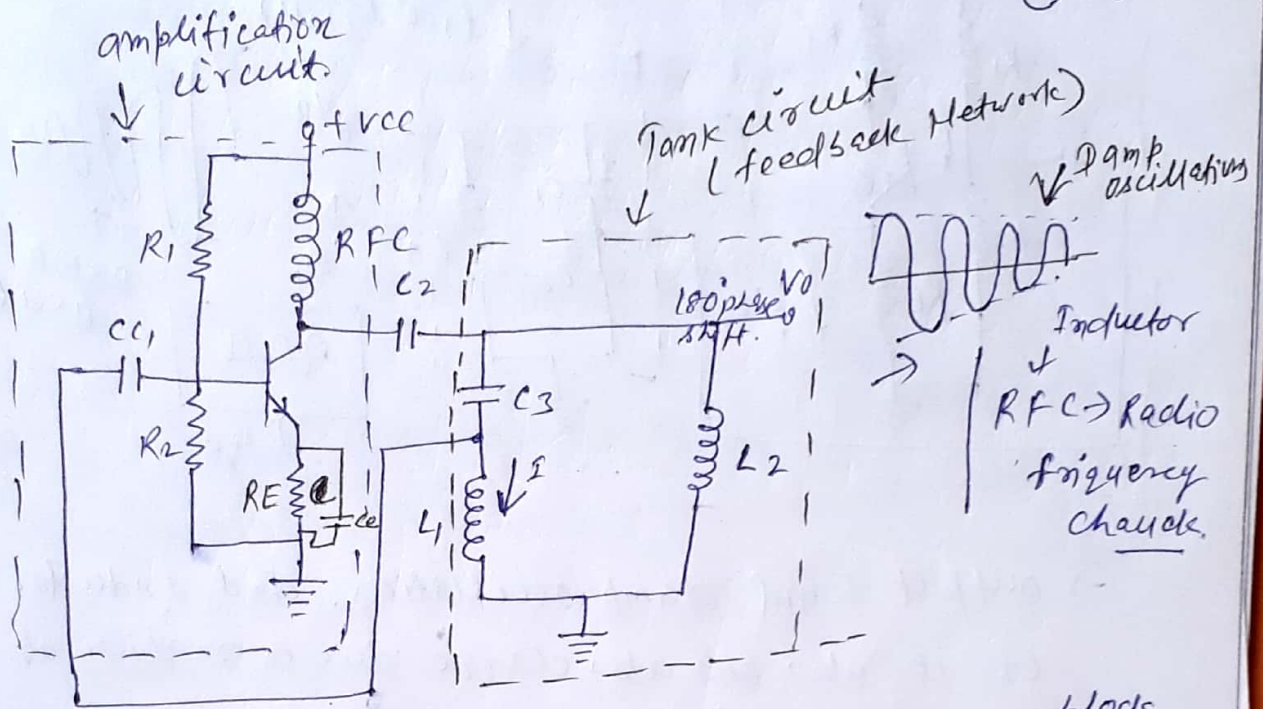 amplification
circuit.
+ vcc
Tank circuit
(feedback Network)
Damp.
oscillations
R1
RFC
C2
180° phase
shift.
Vo
CC1
C3
Inductor
RFC → Radio
friquency
chauck.
R2
RE
Ce
L1
I
L2